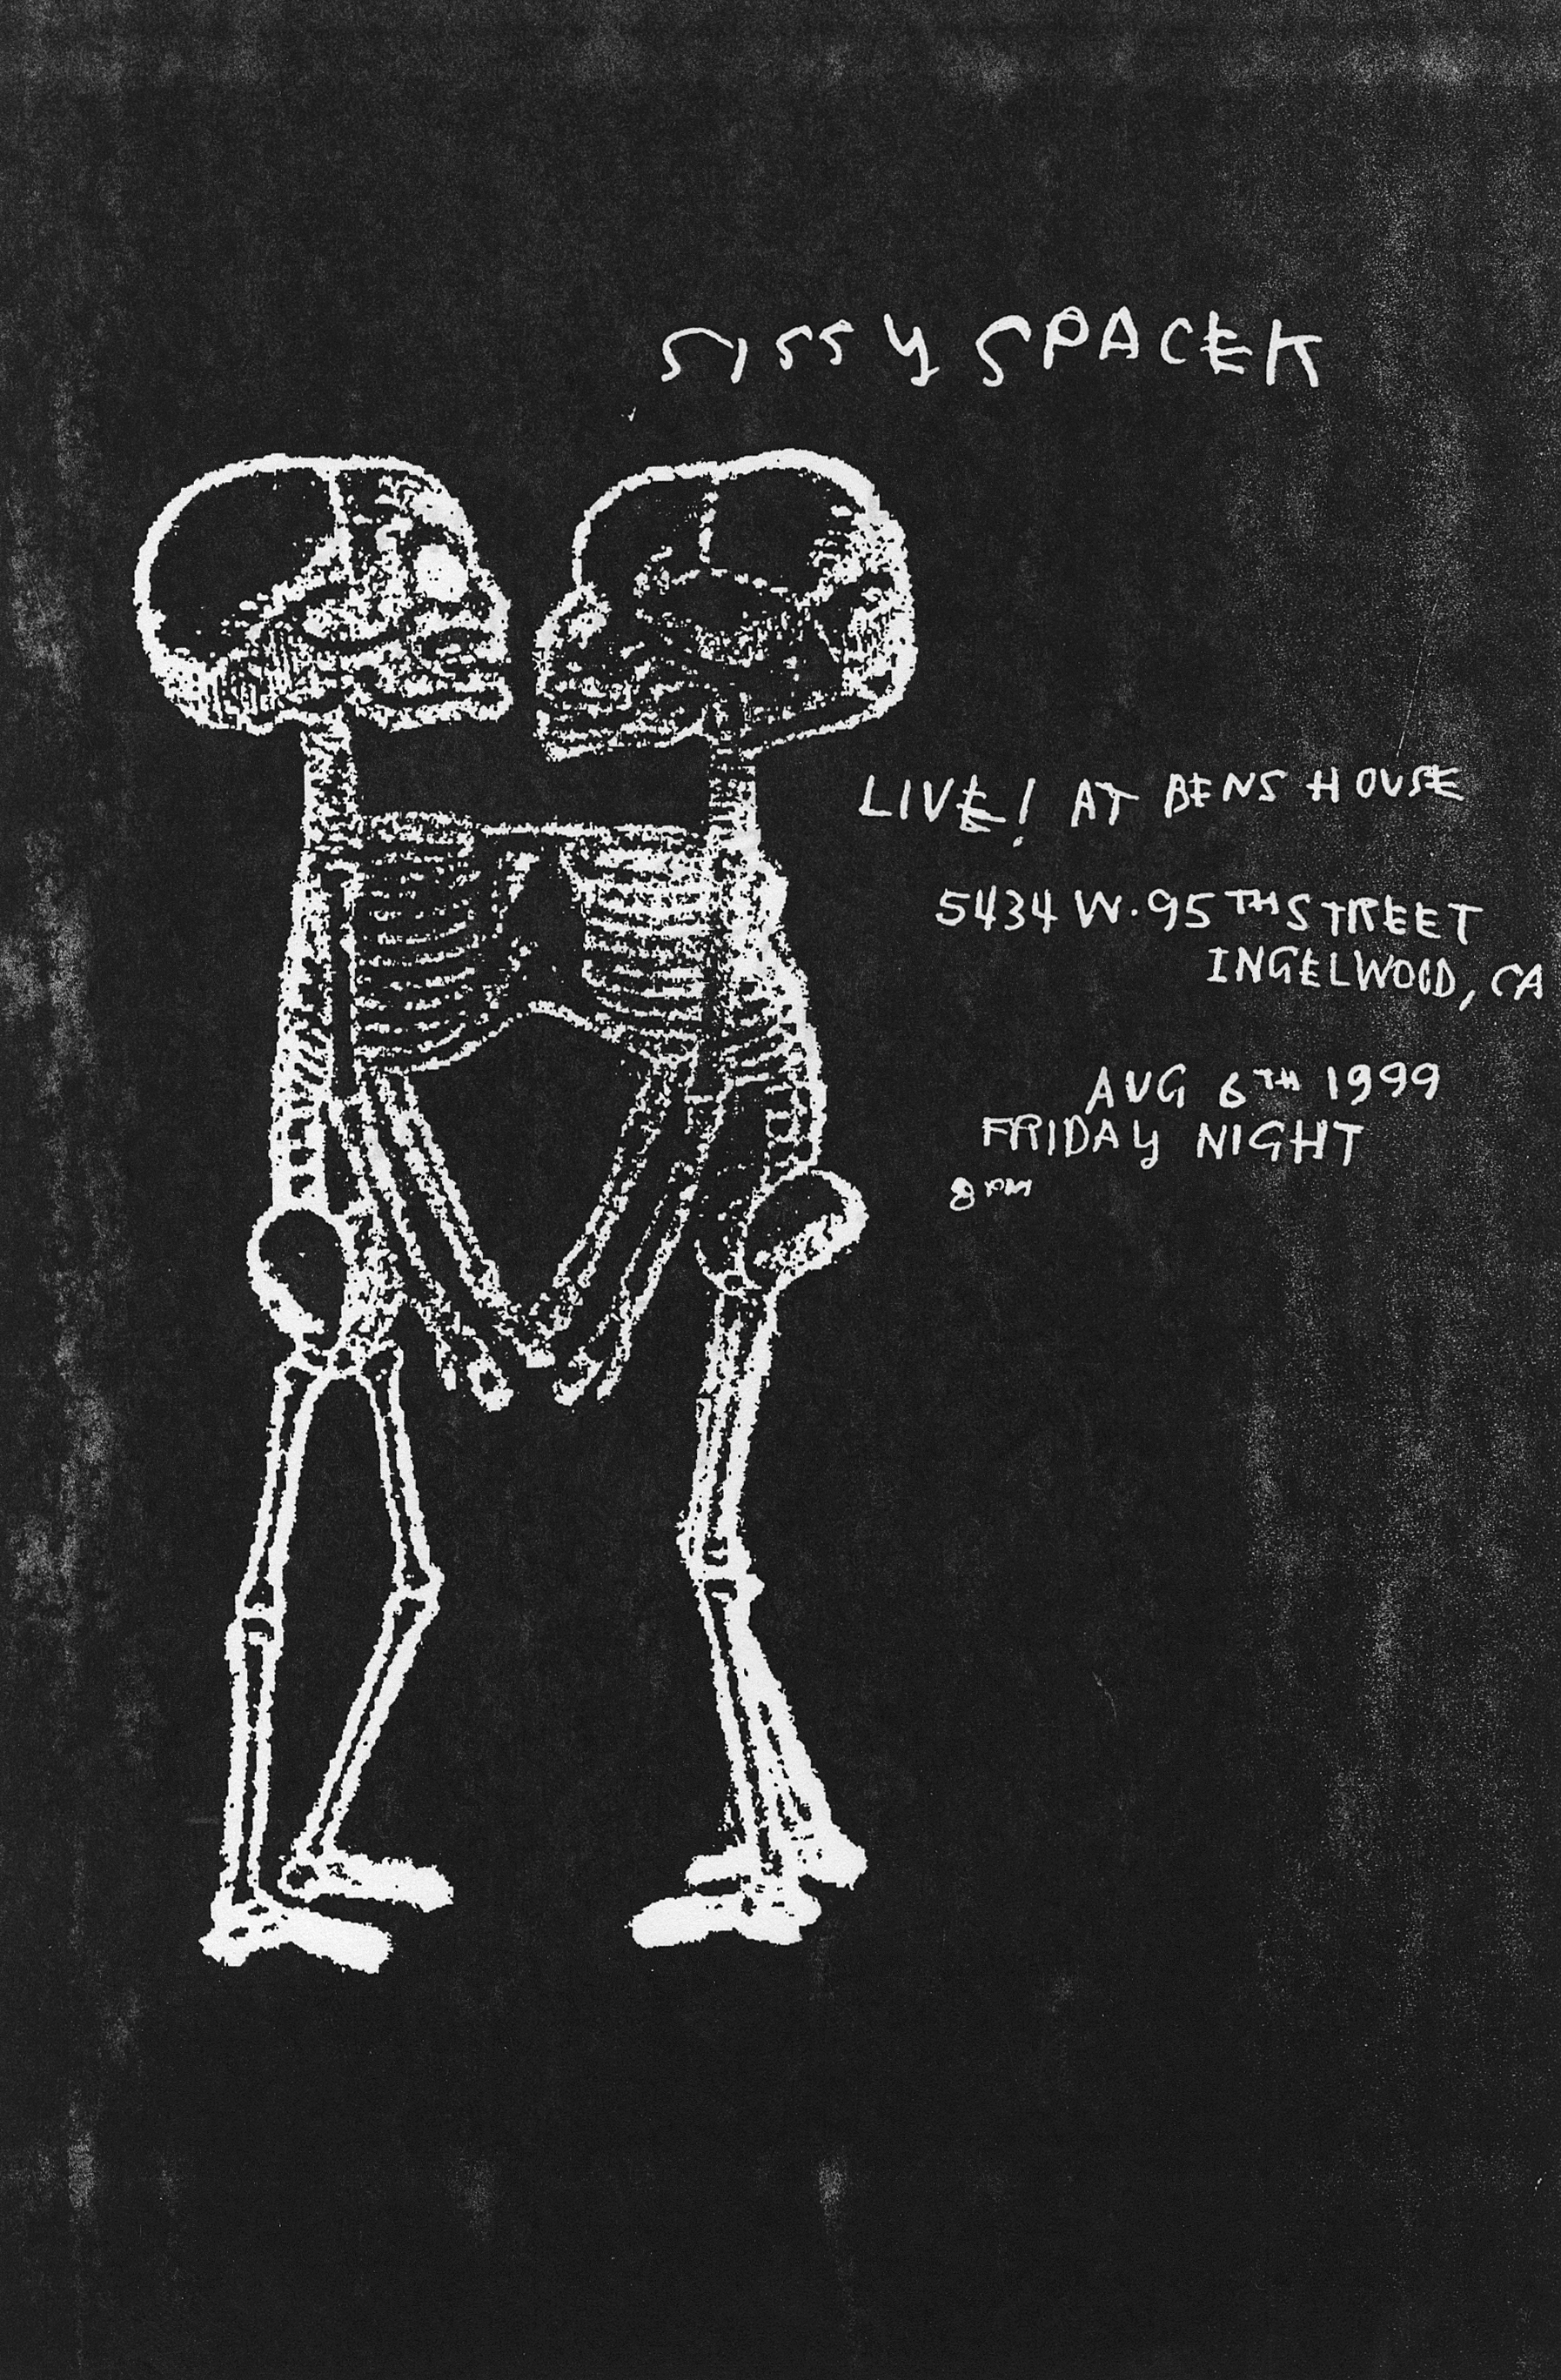 SISSY SPACEK
LIVE! AT BENS HOUSE
5434 W. 95TH STREET
INGELWOOD, CA
AUG 6TH 1999
FRIDAY NIGHT
8PM